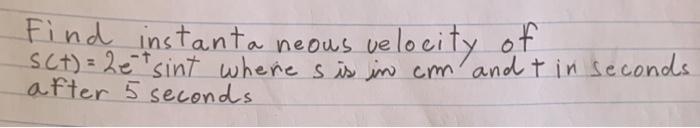 Find instantaneous velocity of
s(t) = 2e^-t sint where s is in cm and t in seconds
after 5 seconds